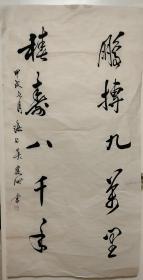 鹏搏九万里
椿寿八千年
甲戌